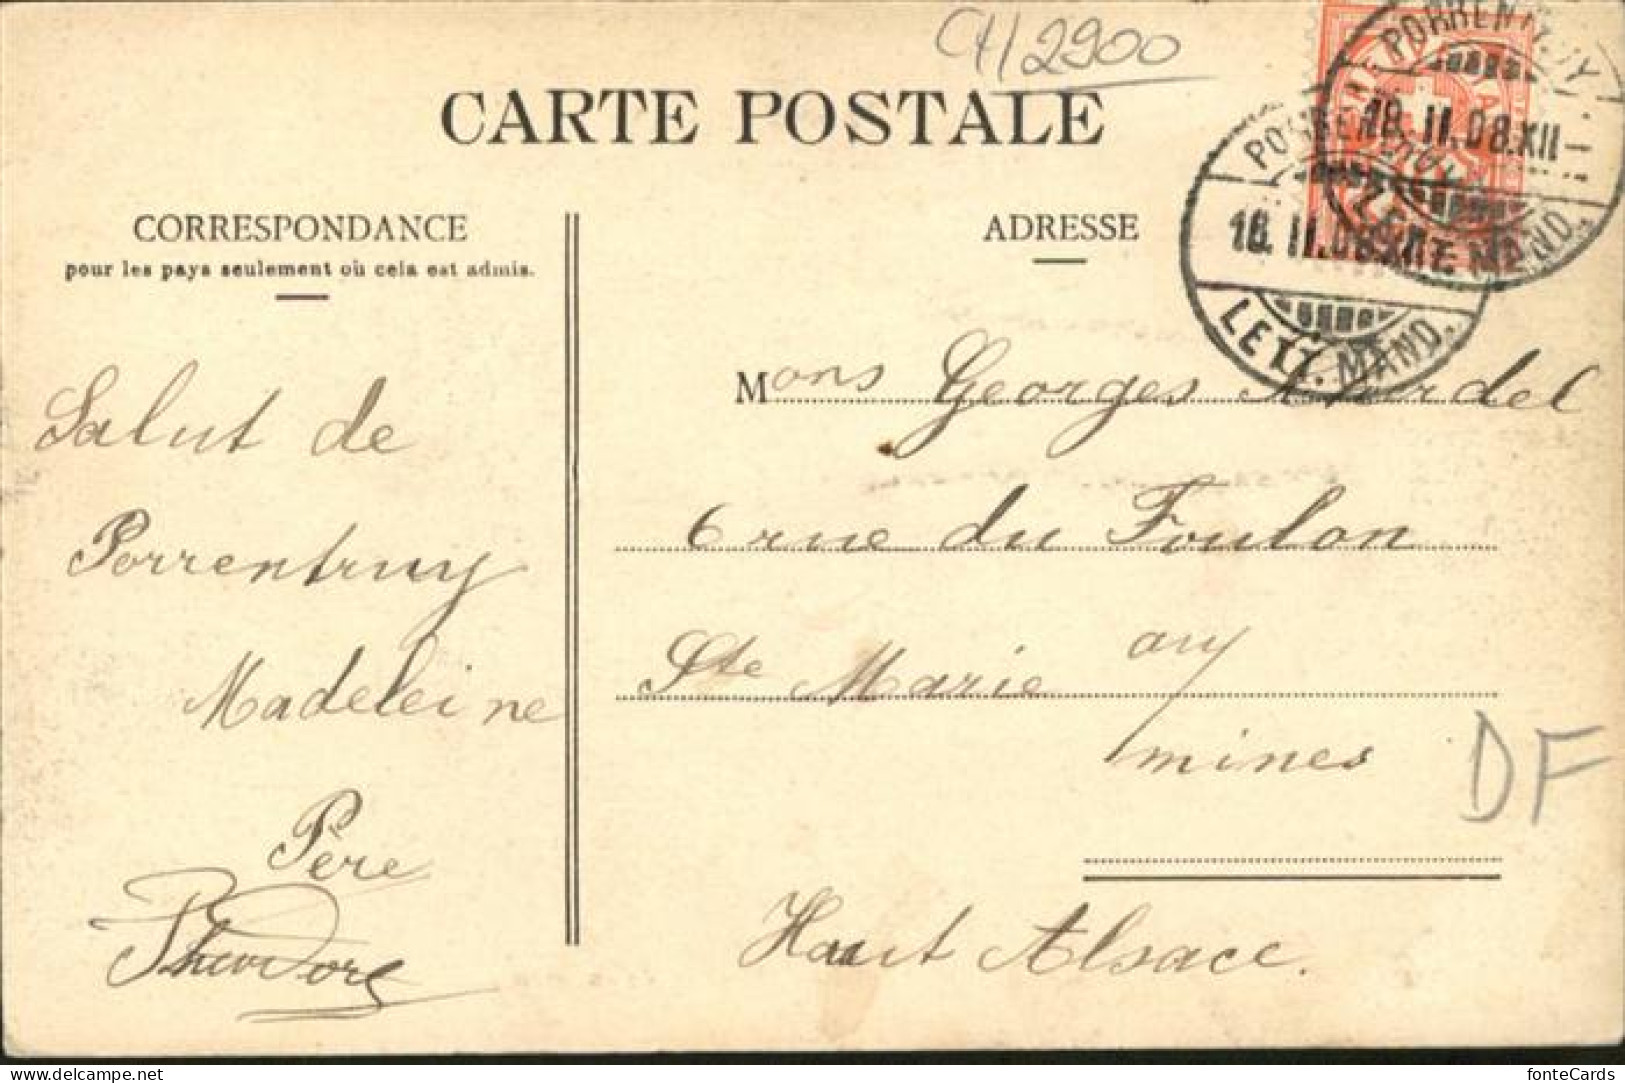 CH/2900
CARTE POSTALE
PORRENTRUY
18. II. 08. XII
LETT. MAND.
PORRENTRUY
18. II. 08. XII
LETT. MAND.
CORRESPONDANCE
pour les pays seulement où cela est admis.
ADRESSE
Salut de
Porrentruy
Madeleine
Père
Theodore
Mons Georges
6 rue du Foulon
Ste Marie aux
mines
Haut Alsace.
DF
fonteCards
www.delcampe.net